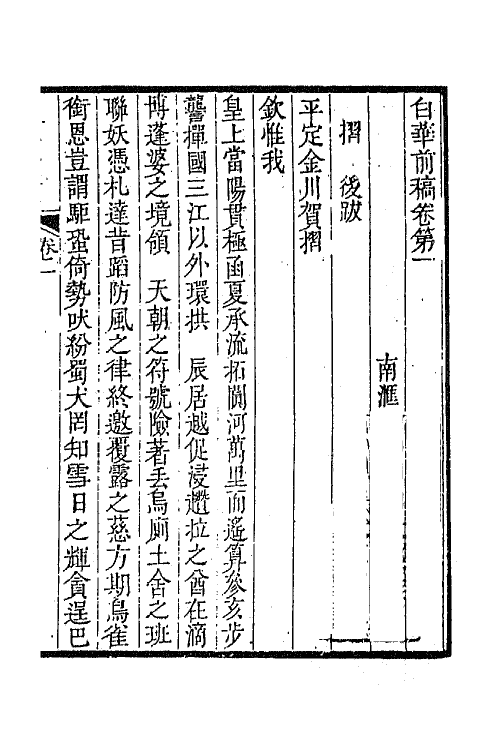 白華前稿卷第一
南滙
摺　後跋
平定金川賀摺
欽惟我
皇上當陽貫極函夏承流拓關河萬里而遙算豥亥步
讋撣國三江以外環拱　辰居越促浸趲拉之酋在滴
博蓬婆之境領　天朝之符號險著丢烏廁土舍之班
聯妖憑札達昔蹈防風之律終邀覆露之慈方期鳥雀
銜恩豈謂駏蛩倚勢吠紛蜀犬罔知雪日之輝貪逞巴
卷一